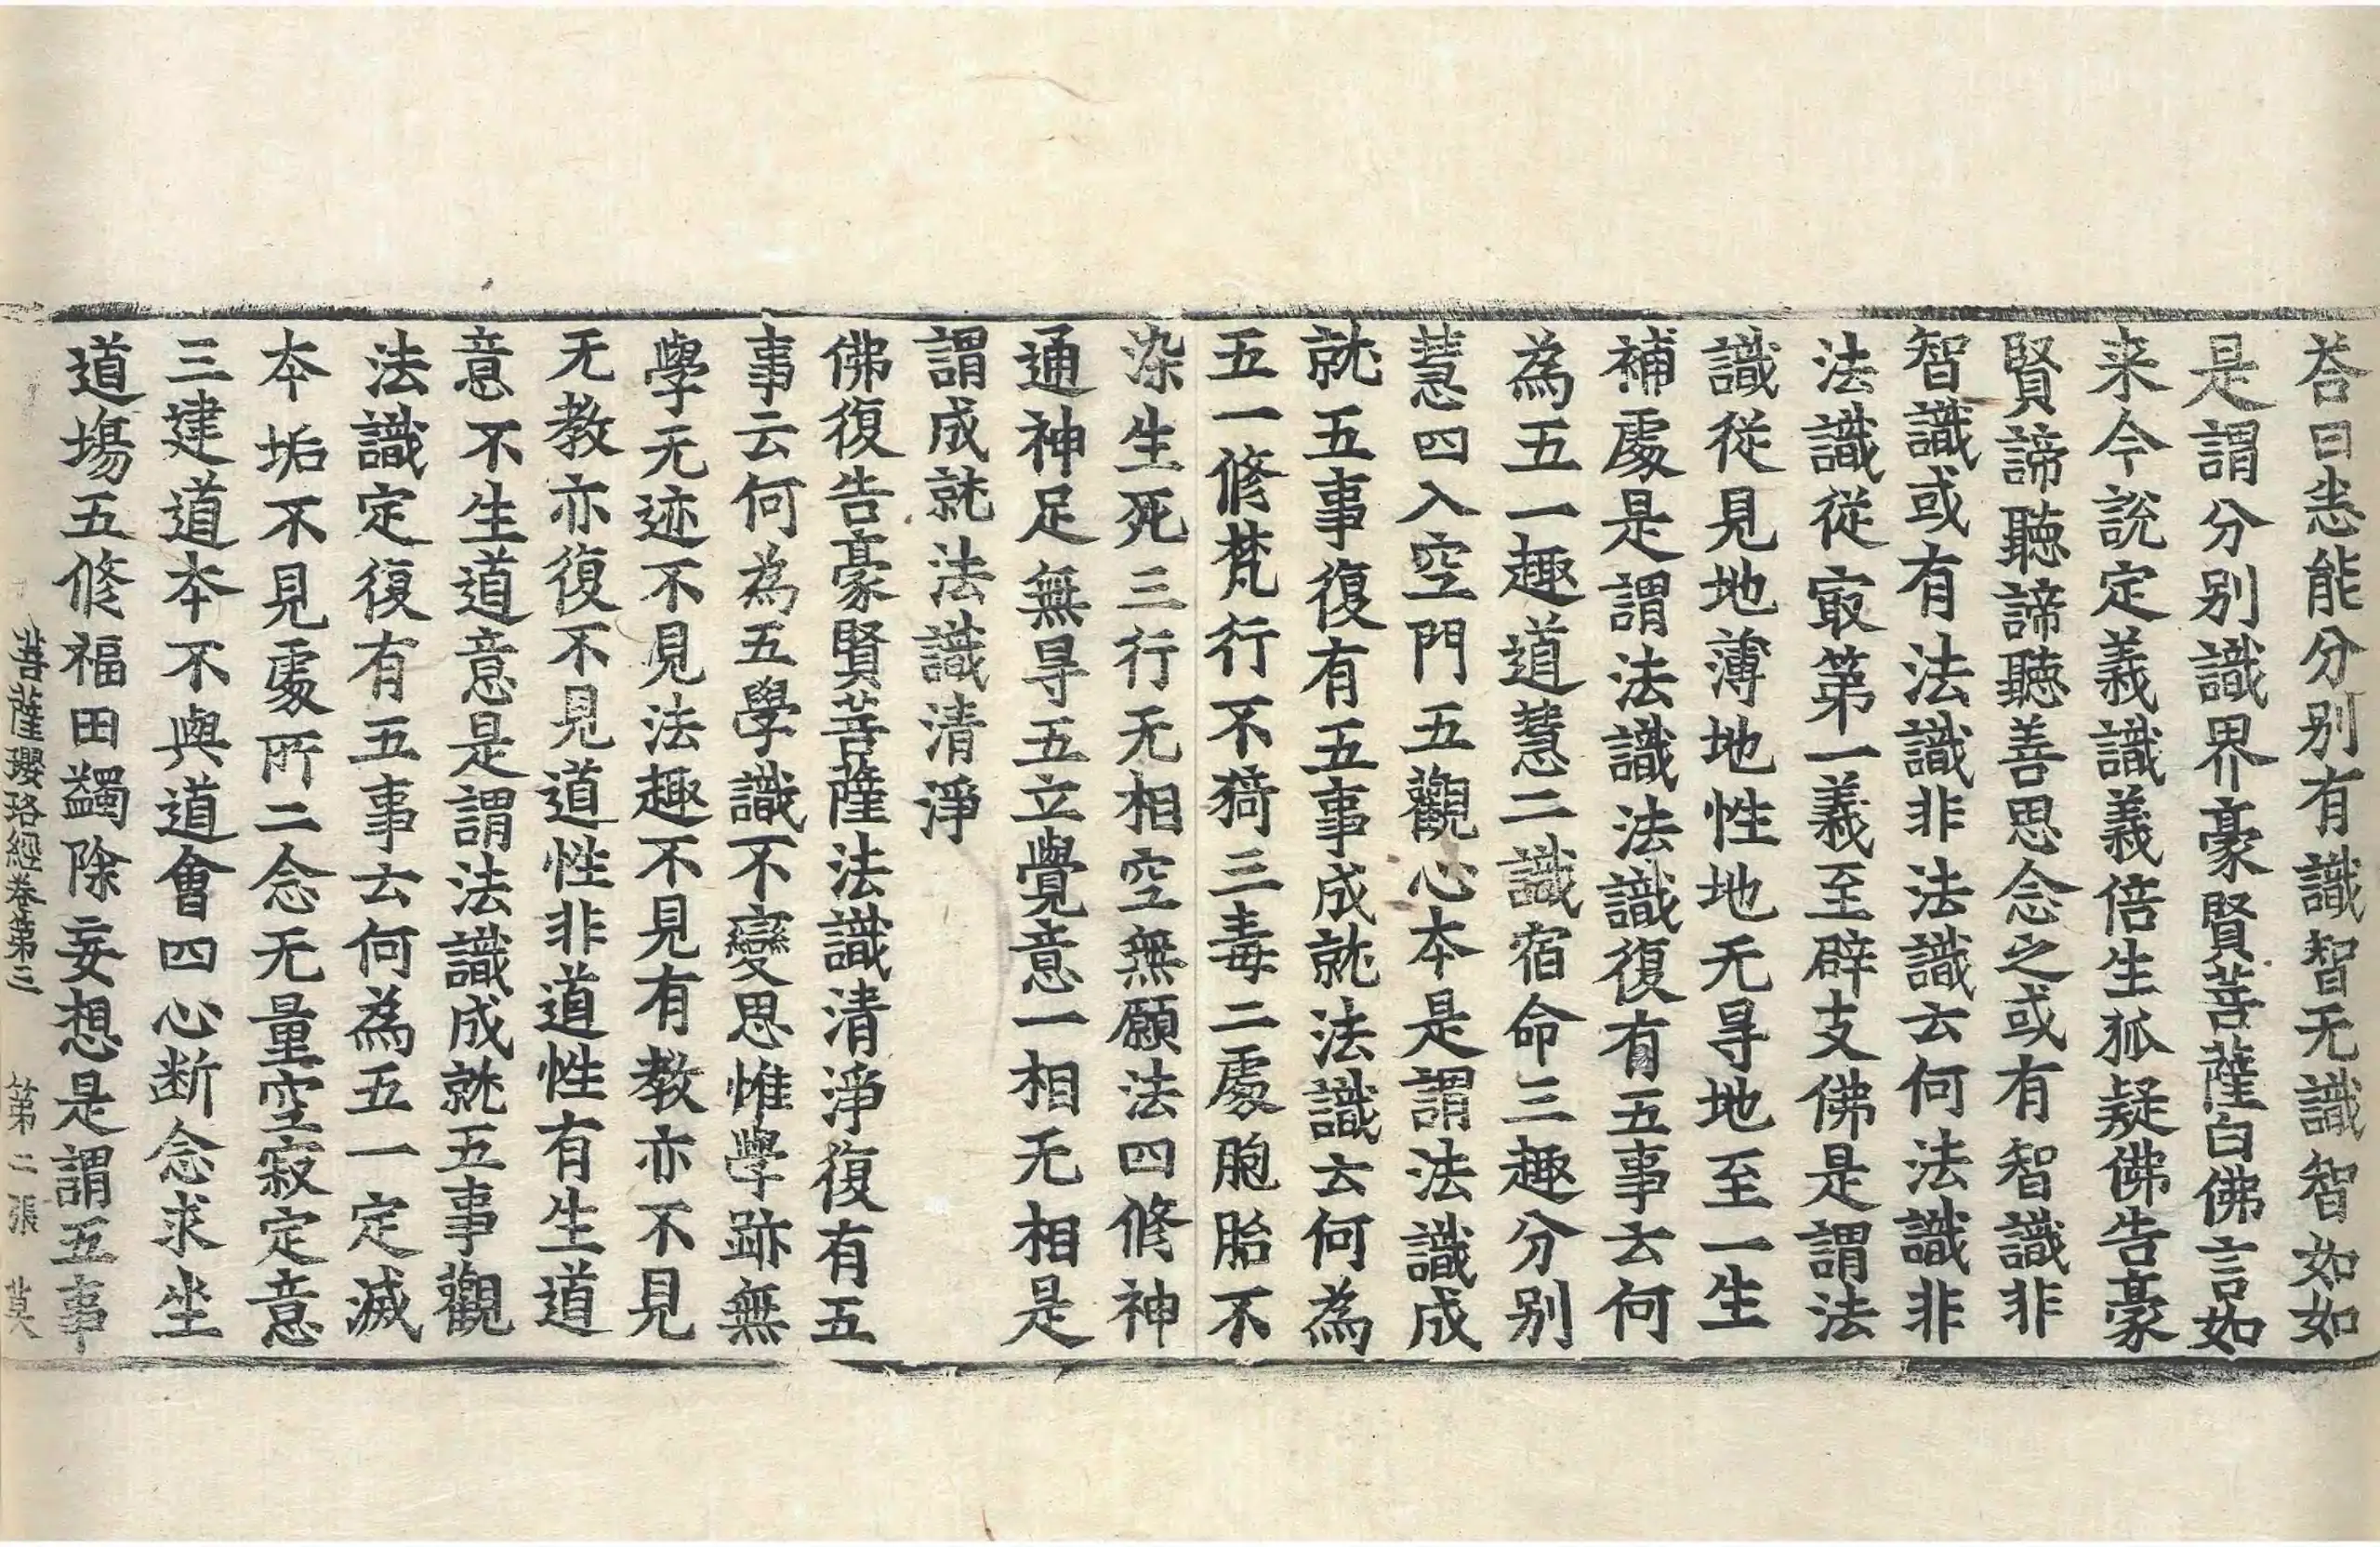 荅曰悉能分别有識智无識智如如
是謂分别識界豪賢菩薩白佛言如
来今說定義識義倍生狐疑佛告豪
賢諦聽諦聽善思念之或有智識非
智識或有法識非法識云何法識非
法識從㝡第一義至辟支佛是謂法
識從見地薄地性地无㝵地至一生
補處是謂法識法識復有五事云何
為五一趣道慧二識宿命三趣分别
慧四入空門五觀心本是謂法識成
就五事復有五事成就法識云何為
五一修梵行不猗三毒二處胞胎不
染生死三行无相空無願法四修神
通神足無㝵五立覺意一相无相是
謂成就法識清淨
佛復告豪賢菩薩法識清淨復有五
事云何為五學識不變思惟學跡無
學无迹不見法趣不見有教亦不見
无教亦復不見道性非道性有生道
意不生道意是謂法識成就五事觀
法識定復有五事云何為五一定滅
本垢不見處所二念无量空寂定意
三建道本不與道會四心断念求坐
道塲五修福田蠲除妄想是謂五事
菩薩瓔珞經卷第三 第二張 莫